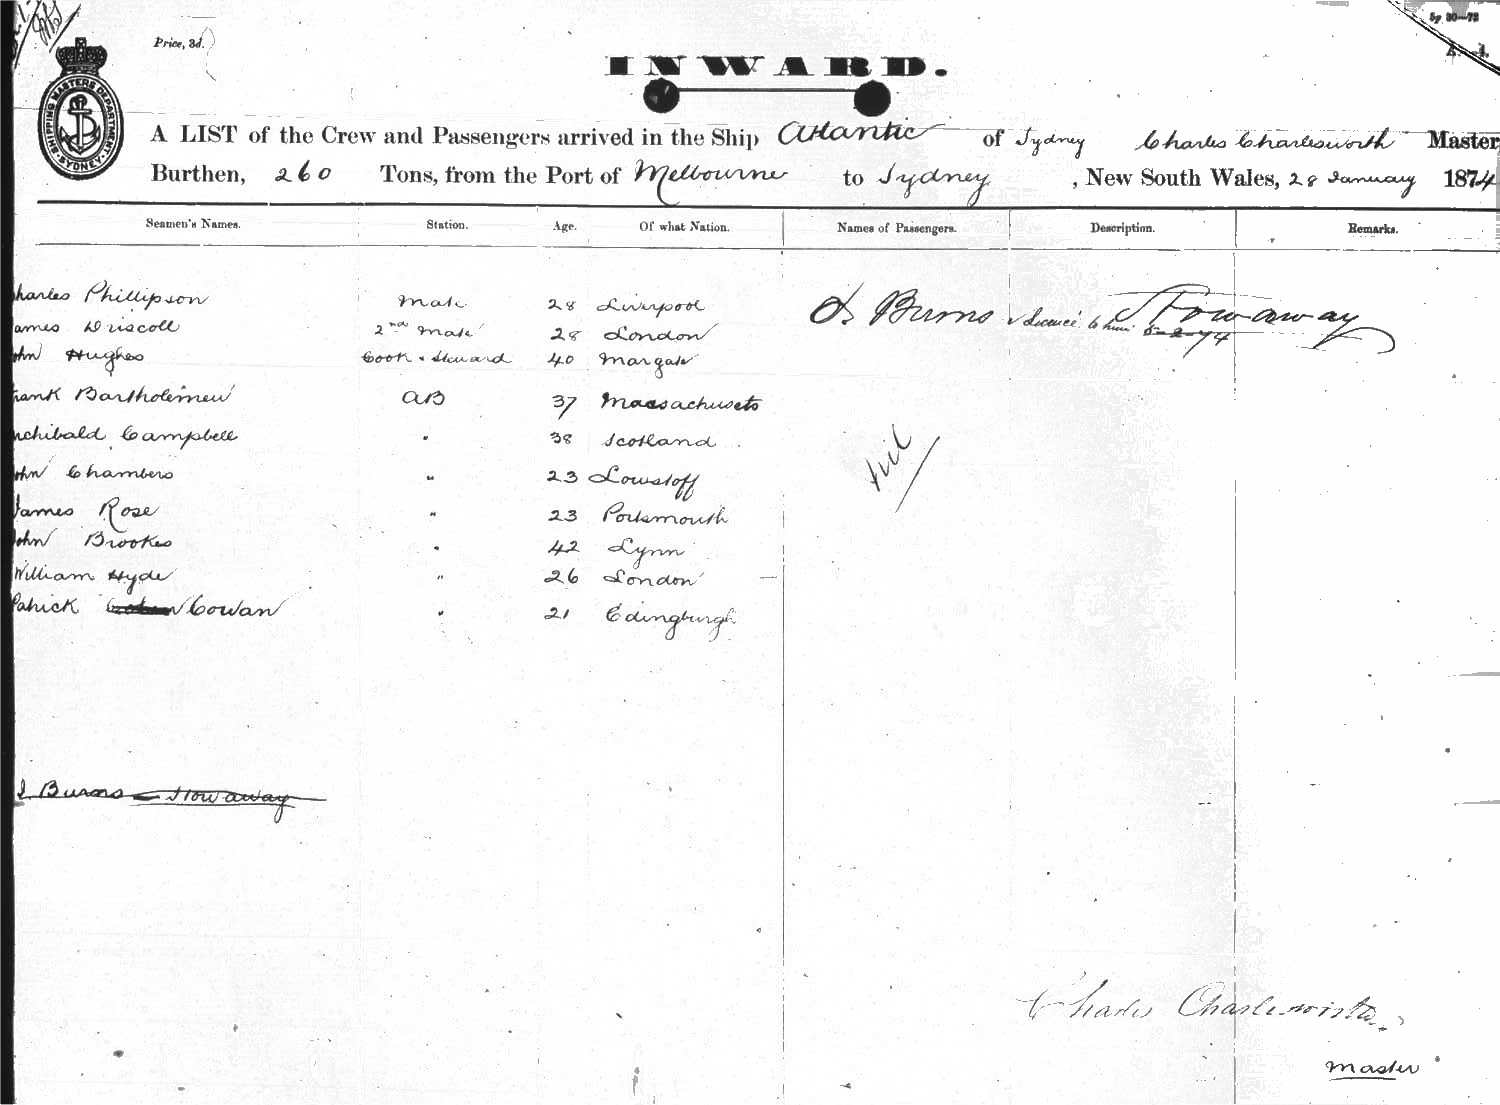 5y 30—72
Price, 3d.
SHIPPING MASTERS DEPARTMENT. SYDNEY
INWARD.
A LIST of the Crew and Passengers arrived in the Ship Atlantic of Sydney Charles Charlesworth Master
Burthen, 260 Tons, from the Port of Melbourne to Sydney, New South Wales, 28 January 1874
Seamen's Names. Station. Age. Of what Nation. Names of Passengers. Description. Remarks.
Charles Phillipson Mate 28 Liverpool Burns Stowaway
8-2-74
James Driscoll 2nd Mate 28 London
John Hughes Cook & Steward 40 Margate
Frank Bartholemew AB 37 Massachusets
Archibald Campbell " 38 Scotland
nil
John Chambers " 23 Lowstoff
James Rose " 23 Portsmouth
John Brookes " 42 Lynn
William Hyde " 26 London
Patrick Cowan " 21 Edingburgh
J Burns - Stowaway
Charles Charlesworth
Master